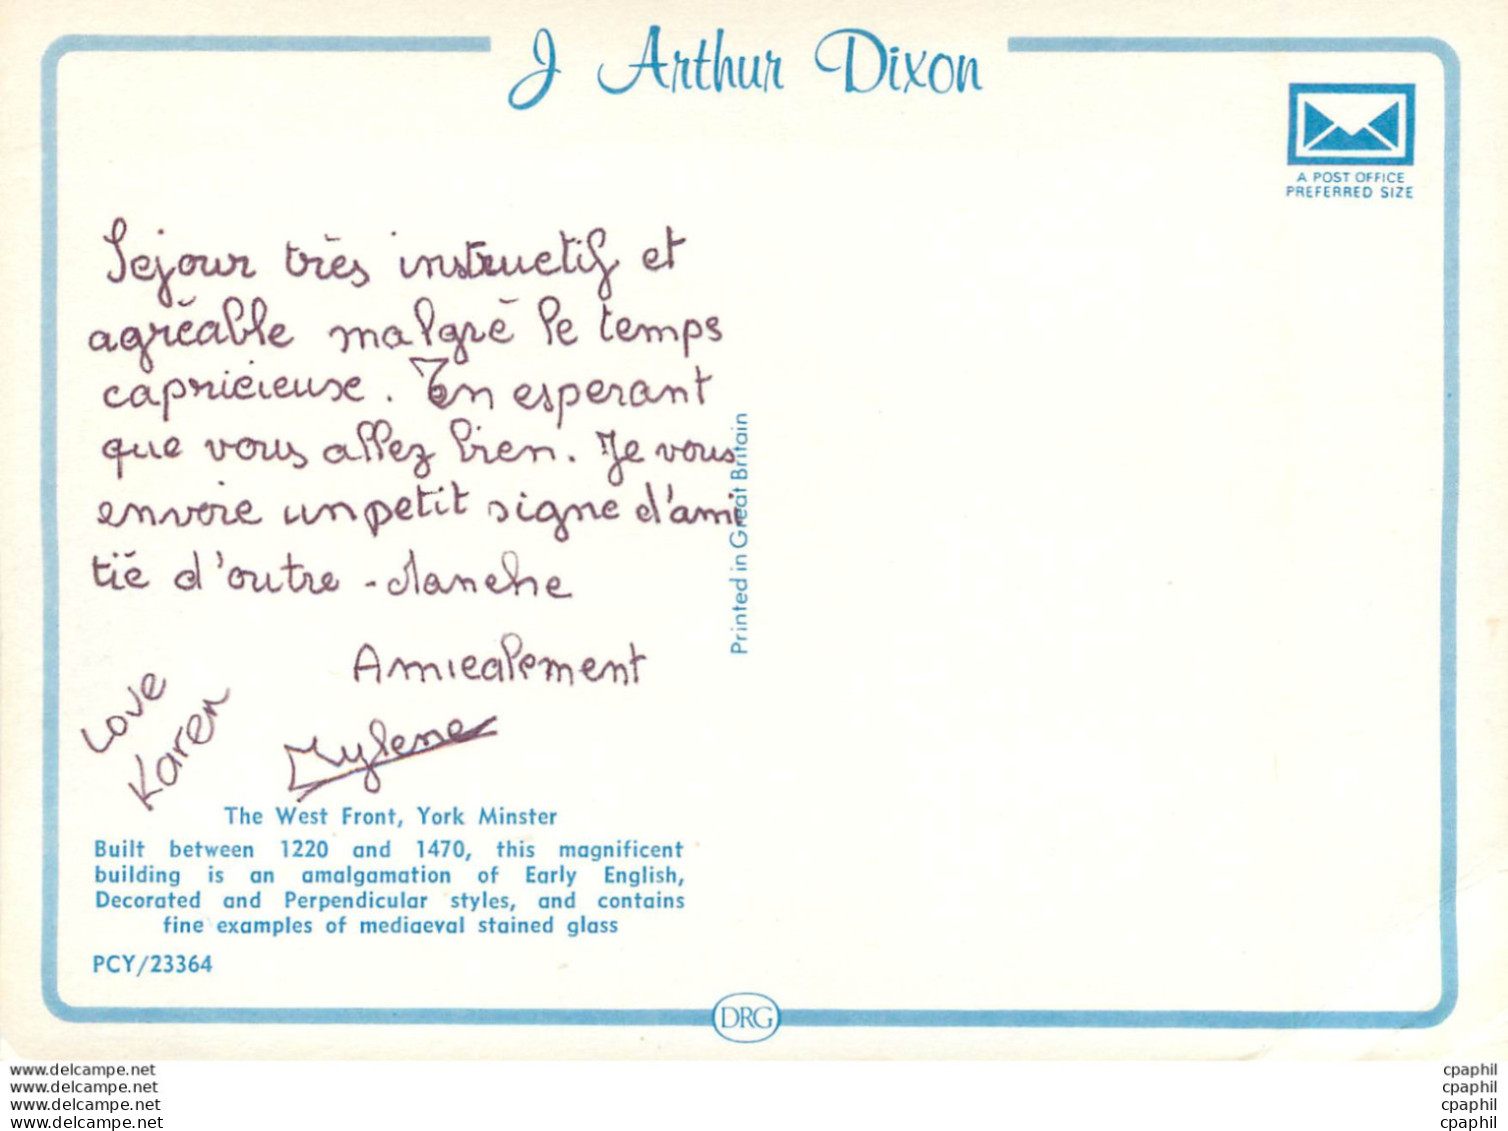 J Arthur Dixon
A POST OFFICE
PREFERRED SIZE
Sejour très instructif et
agréable malgré le temps
capricieuse. En esperant
que vous allez bien. Je vous
envoie un petit signe d'ami
tié d'outre-Manche
Amicalement
Love
Karen
Mylene
Printed in Great Britain
The West Front, York Minster
Built between 1220 and 1470, this magnificent
building is an amalgamation of Early English,
Decorated and Perpendicular styles, and contains
fine examples of mediaeval stained glass
PCY/23364
DRG
www.delcampe.net
www.delcampe.net
www.delcampe.net
www.delcampe.net
cpaphil
cpaphil
cpaphil
cpaphil